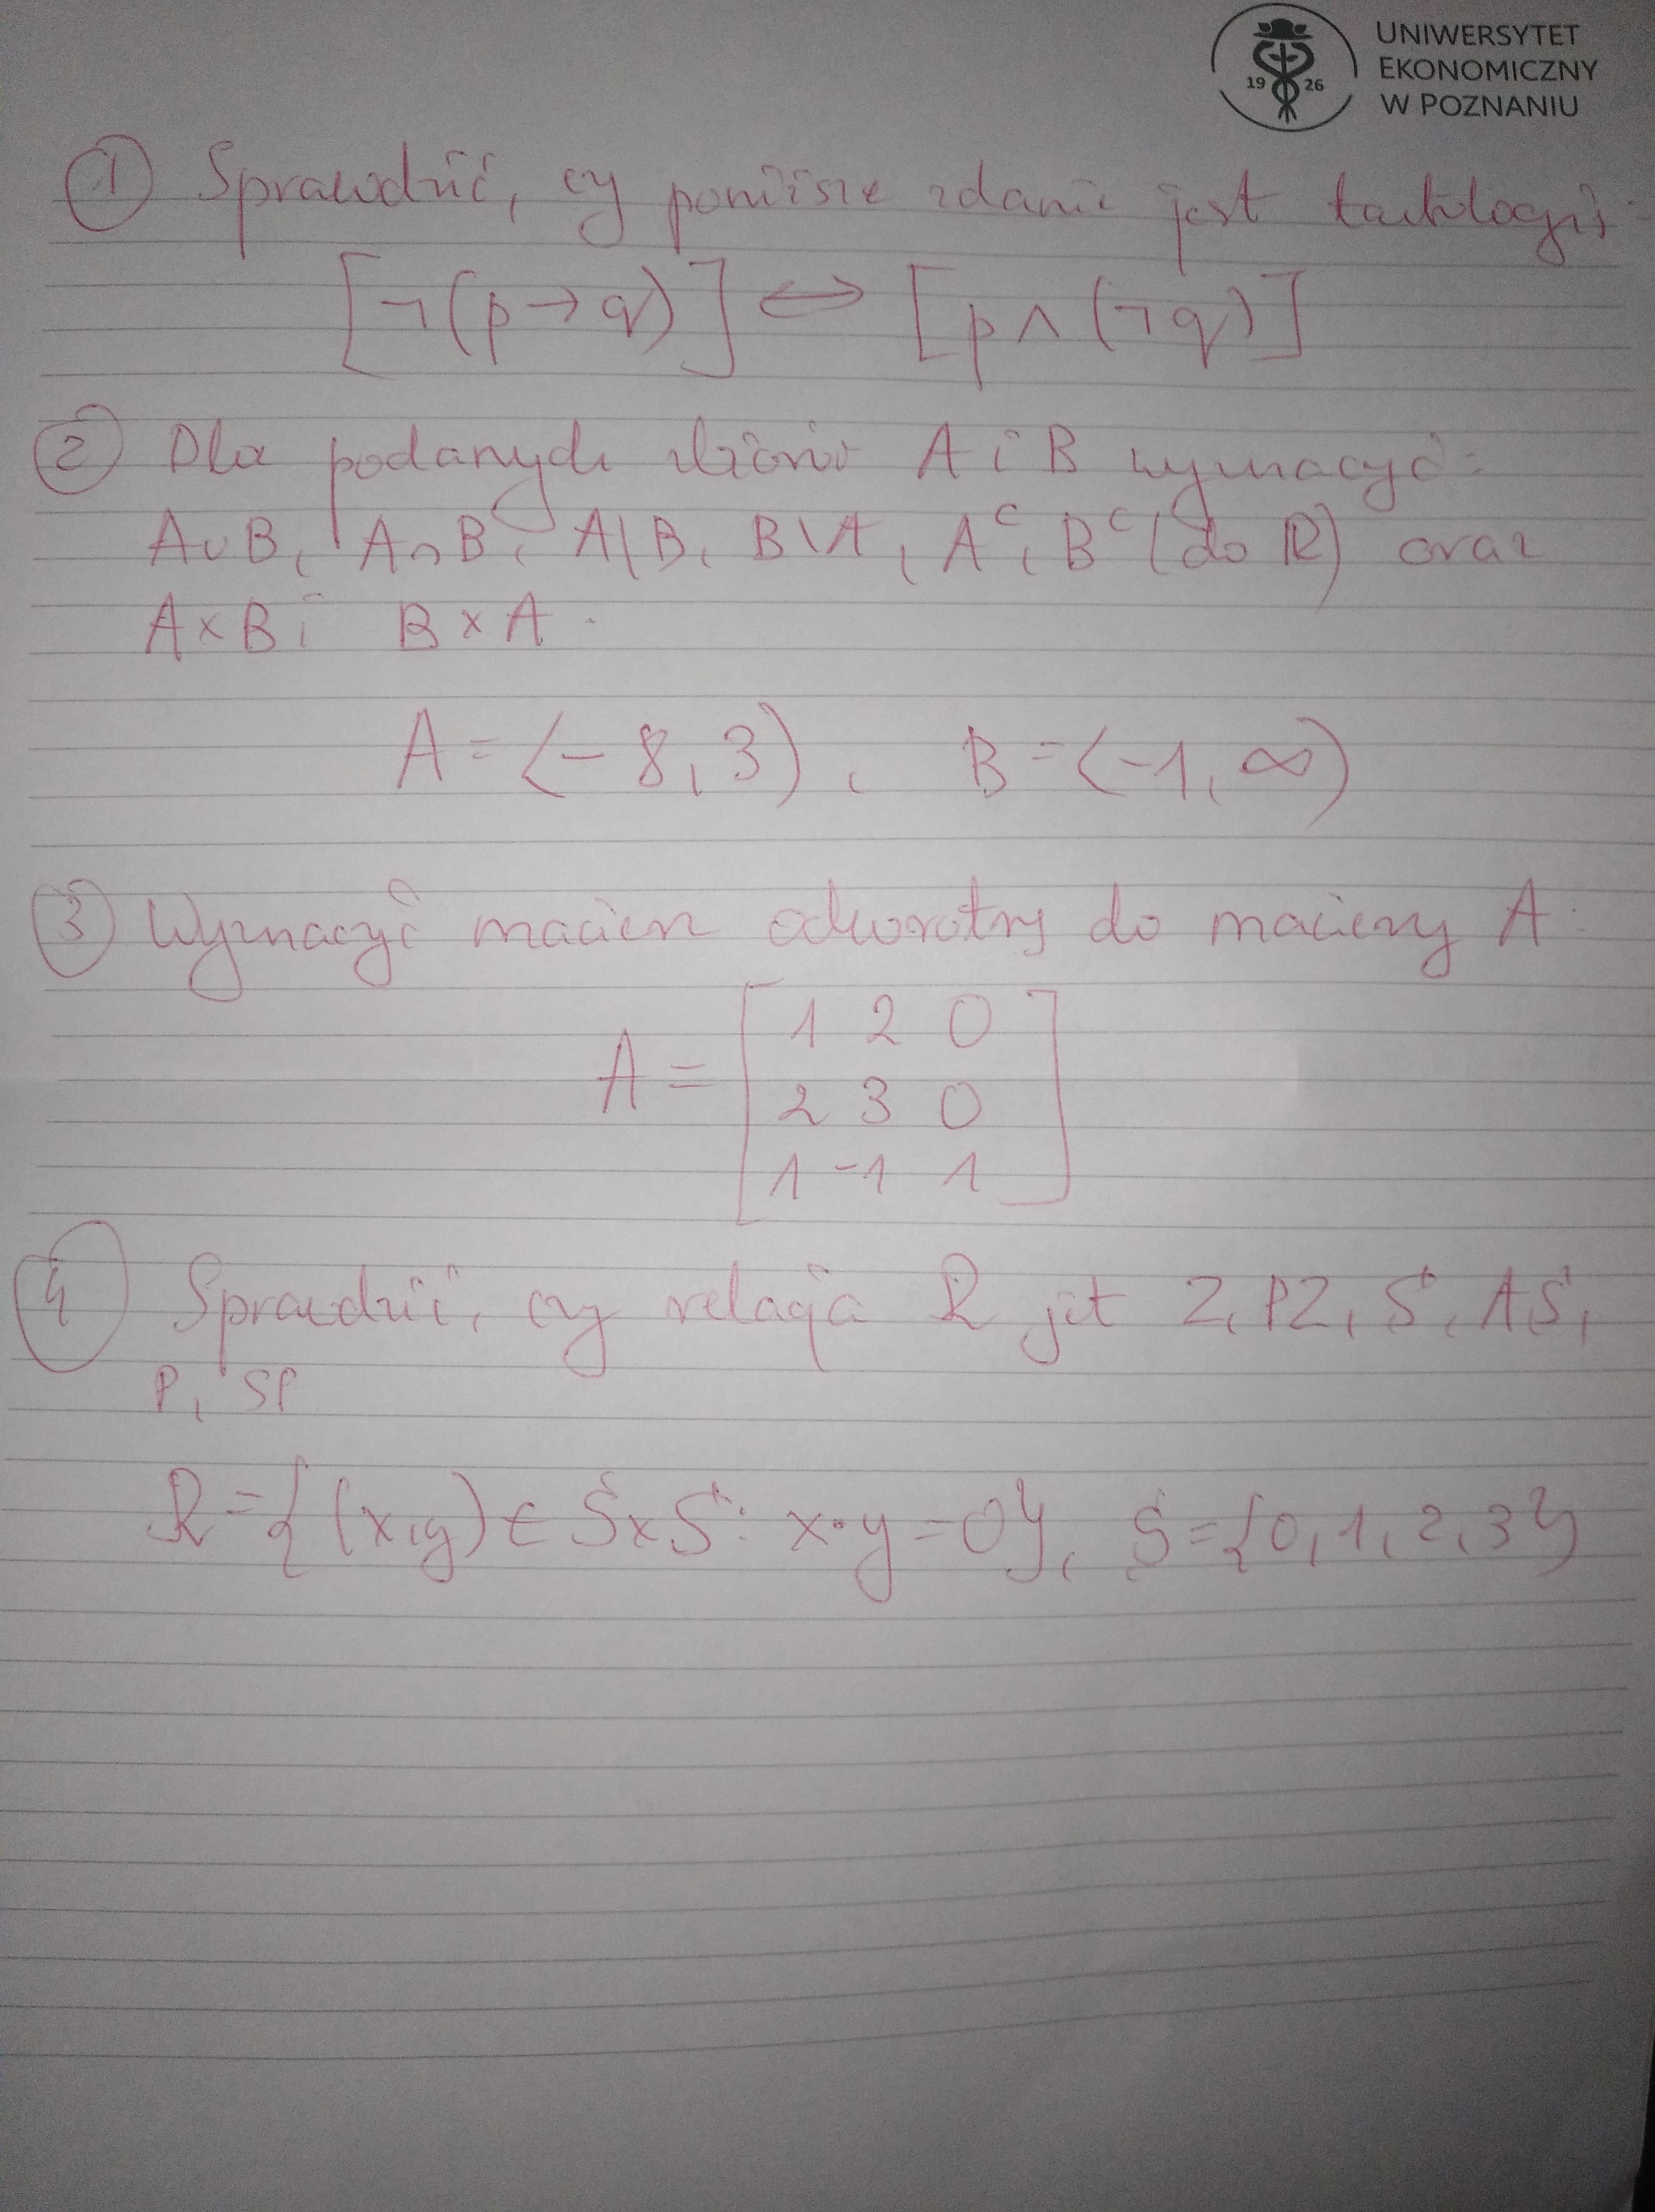 UNIWERSYTET
EKONOMICZNY
W POZNANIU
19 26
① Sprawdzić, czy poniższe zdanie jest tautologią:
[¬(p→q)] ⇔ [p∧(¬q)]
② Dla podanych zbiorów A i B wyznaczyć:
A∪B, A∩B, A\B, B\A, Aᶜ, Bᶜ (do ℝ) oraz
A×B i B×A.
A=⟨-8,3), B=⟨-1,∞)
③ Wyznaczyć macierz odwrotną do macierzy A:
A = [
1 2 0
2 3 0
1 -1 1
]
④ Sprawdzić, czy relacja R jest Z, PZ, S, AS,
P, SP
R={(x,y)∈S×S: x·y=0}, S={0,1,2,3}